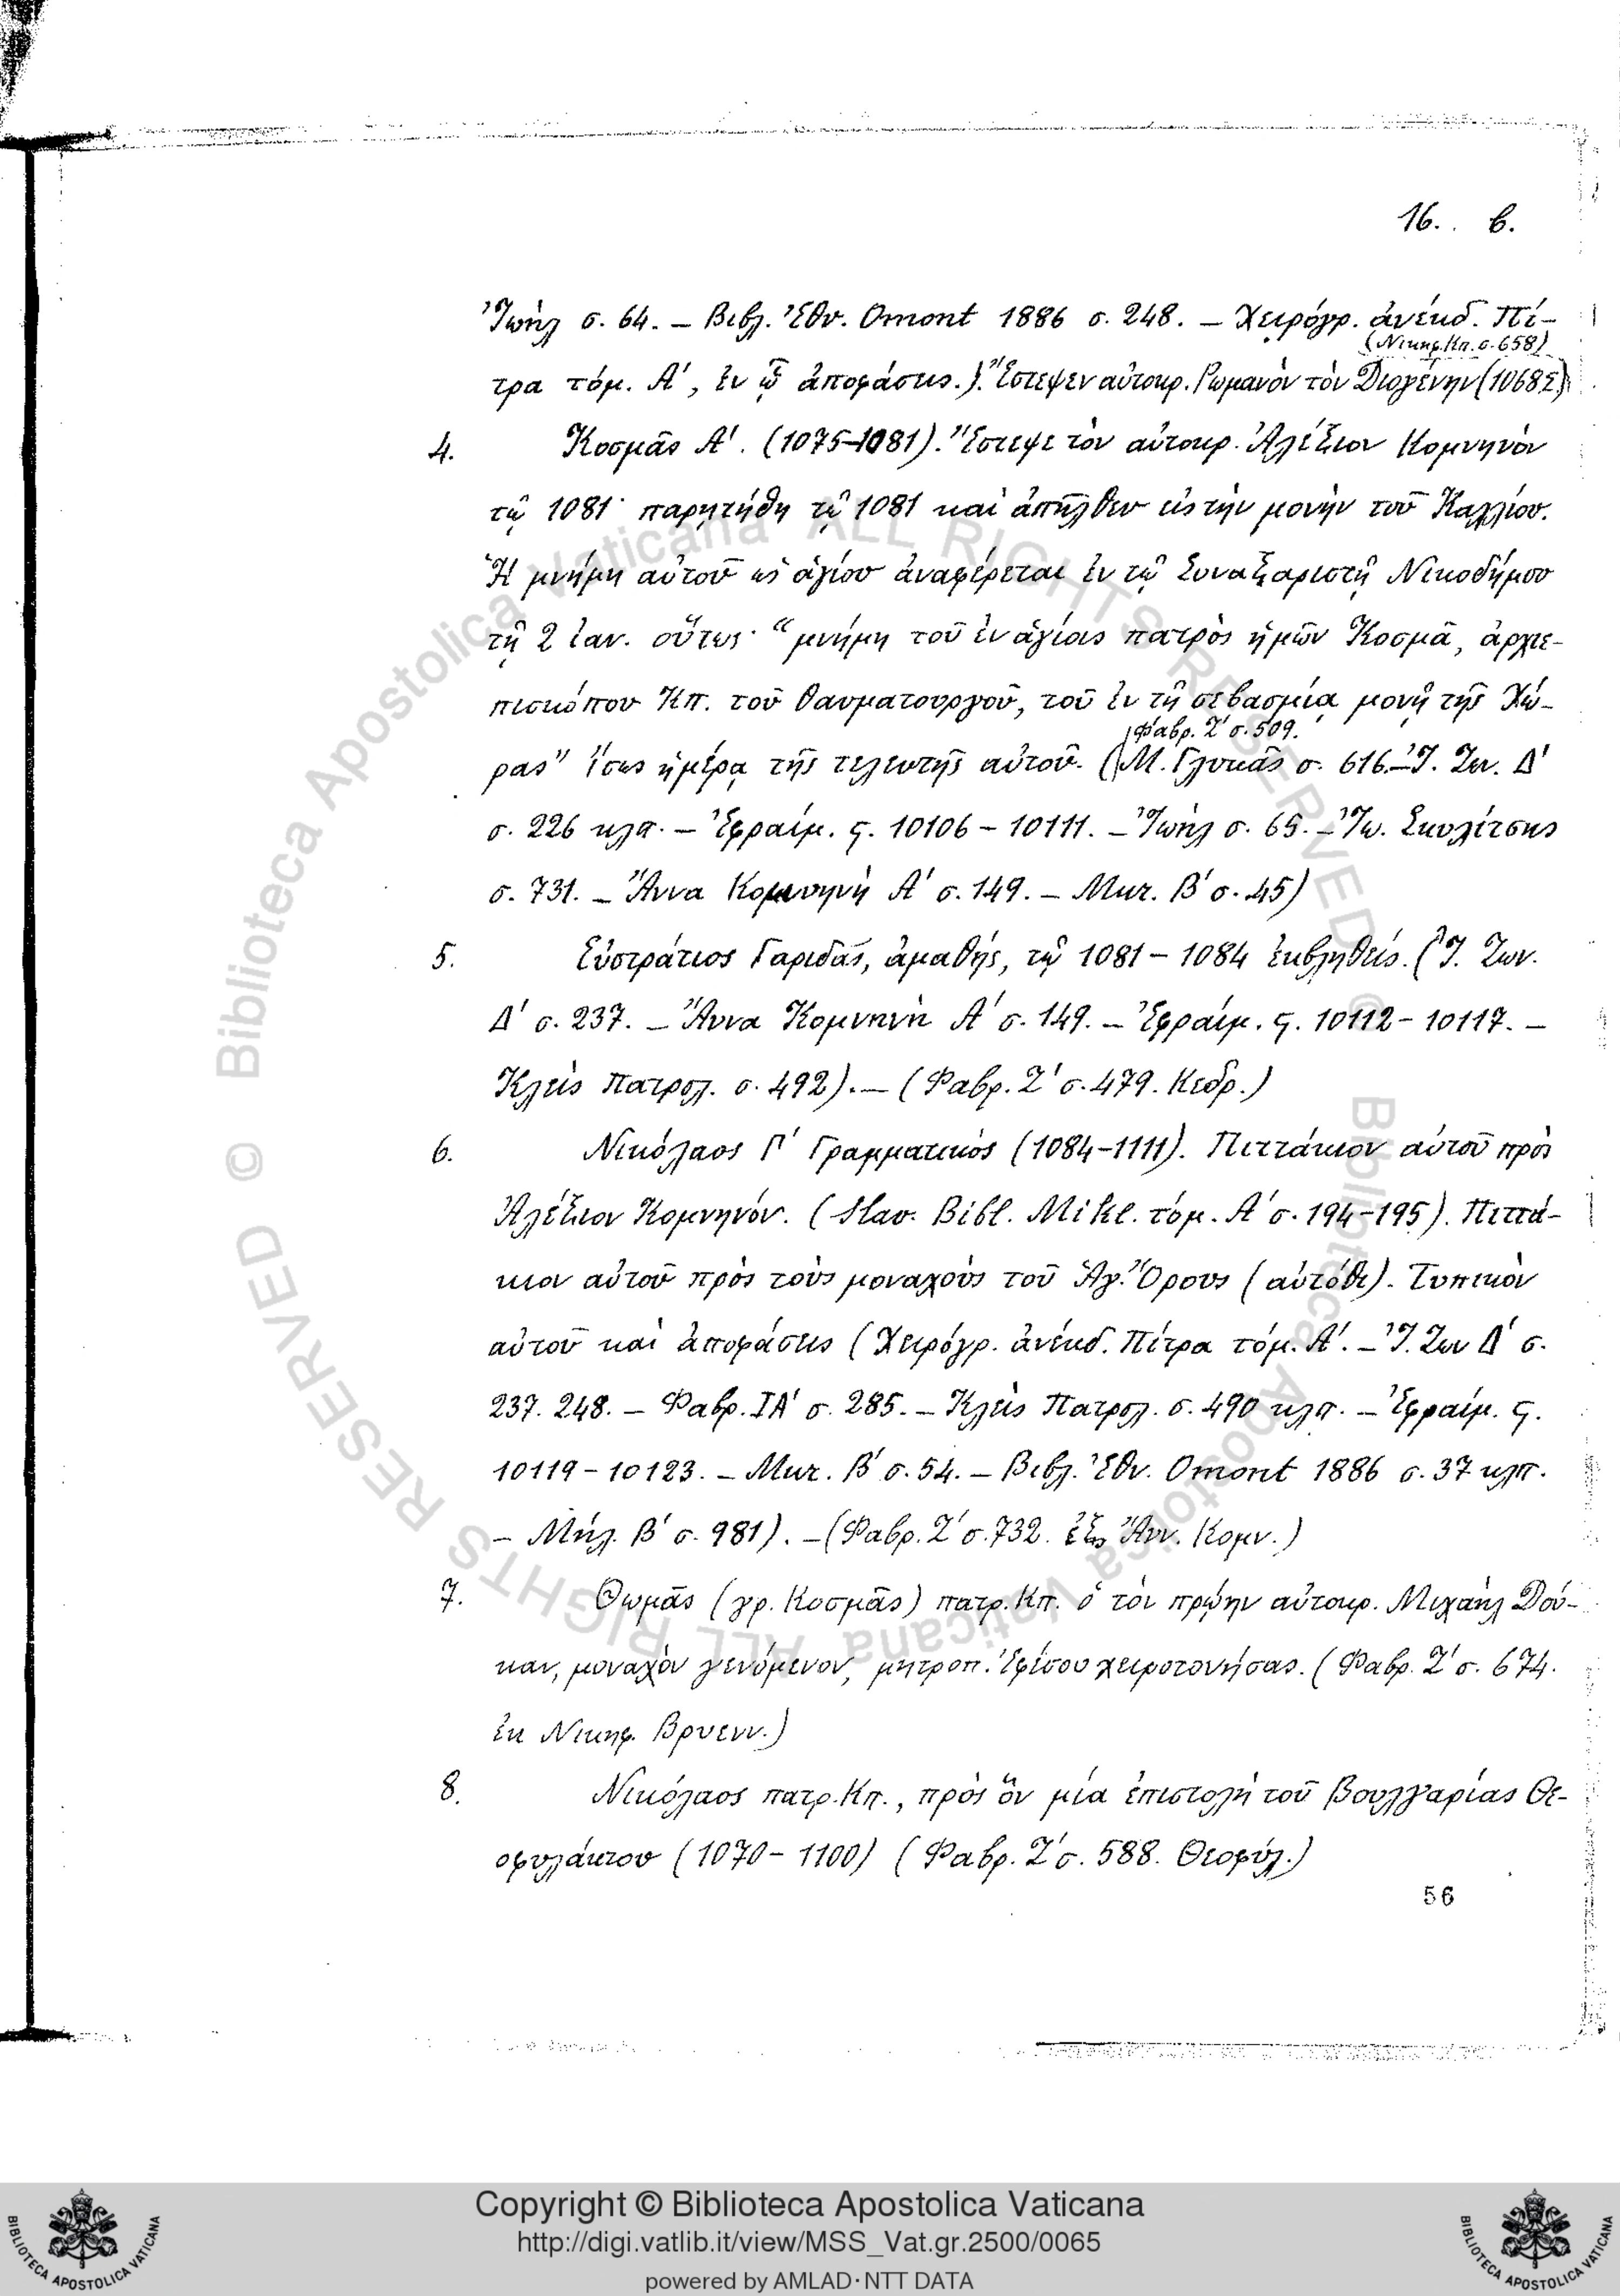 16. β.
Ἰωὴλ σ. 64. – Βιβλ. Ἐθν. Omont 1886 σ. 248. – Χειρόγρ. ἀνέκδ. Πί-
(Νικηφ. Κπ. σ. 658)
τρα τόμ. Α', ἐν ᾧ ἀποφάσεις.). Ἔστεψεν αὐτοκρ. Ρωμανὸν τὸν Διογένην (1068
4. Κοσμᾶς Α'. (1075–1081). Ἔστεψε τὸν αὐτοκρ. Ἀλέξιον Κομνηνὸν
τῷ 1081· παρῃτήθη τῷ 1081 καὶ ἀπῆλθεν εἰς τὴν μονὴν τοῦ Καλλίου.
Ἡ μνήμη αὐτοῦ ὡς ἁγίου ἀναφέρεται ἐν τῷ Συναξαριστῇ Νικοδήμου
τῇ 2 ἰαν. οὕτως· "μνήμη τοῦ ἐν ἁγίοις πατρὸς ἡμῶν Κοσμᾶ, ἀρχιε-
πισκόπου Κπ. τοῦ θαυματουργοῦ, τοῦ ἐν τῇ σεβασμίᾳ μονῇ τῆς Χώ-
Φαβρ. Ζ' σ. 509.
ρας" ἴσως ἡμέρᾳ τῆς τελευτῆς αὐτοῦ. (Μ. Γλυκᾶς σ. 616. – Ἰ. Ζων. Δ'
σ. 226 κλπ. – Ἐφραίμ. ς. 10106 – 10111. – Ἰωὴλ σ. 65. – Ἰω. Σκυλίτσης
σ. 731. – Ἄννα Κομνηνὴ Α' σ. 149. – Μικ. Β' σ. 45)
5. Εὐστράτιος Γαριδᾶς, ἀμαθής, τῷ 1081 – 1084 ἐκβληθείς. (Ἰ. Ζων.
Δ' σ. 237. – Ἄννα Κομνηνὴ Α' σ. 149. – Ἐφραίμ. ς. 10112 – 10117. –
Κλεὶς Πατρολ. σ. 492). – (Φαβρ. Ζ' σ. 479. Κεδρ.)
6. Νικόλαος Γ' Γραμματικὸς (1084–1111). Πιττάκιον αὐτοῦ πρὸς
Ἀλέξιον Κομνηνόν. (Slav. Bibl. Mikl. τόμ. Α' σ. 194–195). Πιττά-
κιον αὐτοῦ πρὸς τοὺς μοναχοὺς τοῦ Ἁγ. Ὄρους (αὐτόθι). Τυπικὸν
αὐτοῦ καὶ ἀποφάσεις (Χειρόγρ. ἀνέκδ. Πίτρα τόμ. Α'. – Ἰ. Ζων Δ' σ.
237. 248. – Φαβρ. ΙΑ' σ. 285. – Κλεὶς Πατρολ. σ. 490 κλπ. – Ἐφραίμ. ς.
10119 – 10123. – Μικ. Β' σ. 54. – Βιβλ. Ἐθν. Omont 1886 σ. 37 κλπ.
– Μήλ. Β' σ. 981). – (Φαβρ. Ζ' σ. 732. Ἄνν. Κομν.)
7. Θωμᾶς (γρ. Κοσμᾶς) πατρ. Κπ. ὁ τὸν πρῴην αὐτοκρ. Μιχαὴλ Δού-
καν, μοναχὸν γενόμενον, μητροπ. Ἐφέσου χειροτονήσας. (Φαβρ. Ζ' σ. 674.
ἐκ Νικηφ. Βρυενν.)
8. Νικόλαος πατρ. Κπ., πρὸς ὃν μία ἐπιστολὴ τοῦ Βουλγαρίας Θε-
οφυλάκτου (1070 – 1100) (Φαβρ. Ζ' σ. 588. Θεοφύλ.)
56
© Biblioteca Apostolica Vaticana ALL RIGHTS RESERVED © Biblioteca Apostolica Vaticana ALL RIGHTS RESERVED
Copyright © Biblioteca Apostolica Vaticana
http://digi.vatlib.it/view/MSS_Vat.gr.2500/0065
powered by AMLAD·NTT DATA
BIBLIOTECA APOSTOLICA VATICANA
BIBLIOTECA APOSTOLICA VATICANA